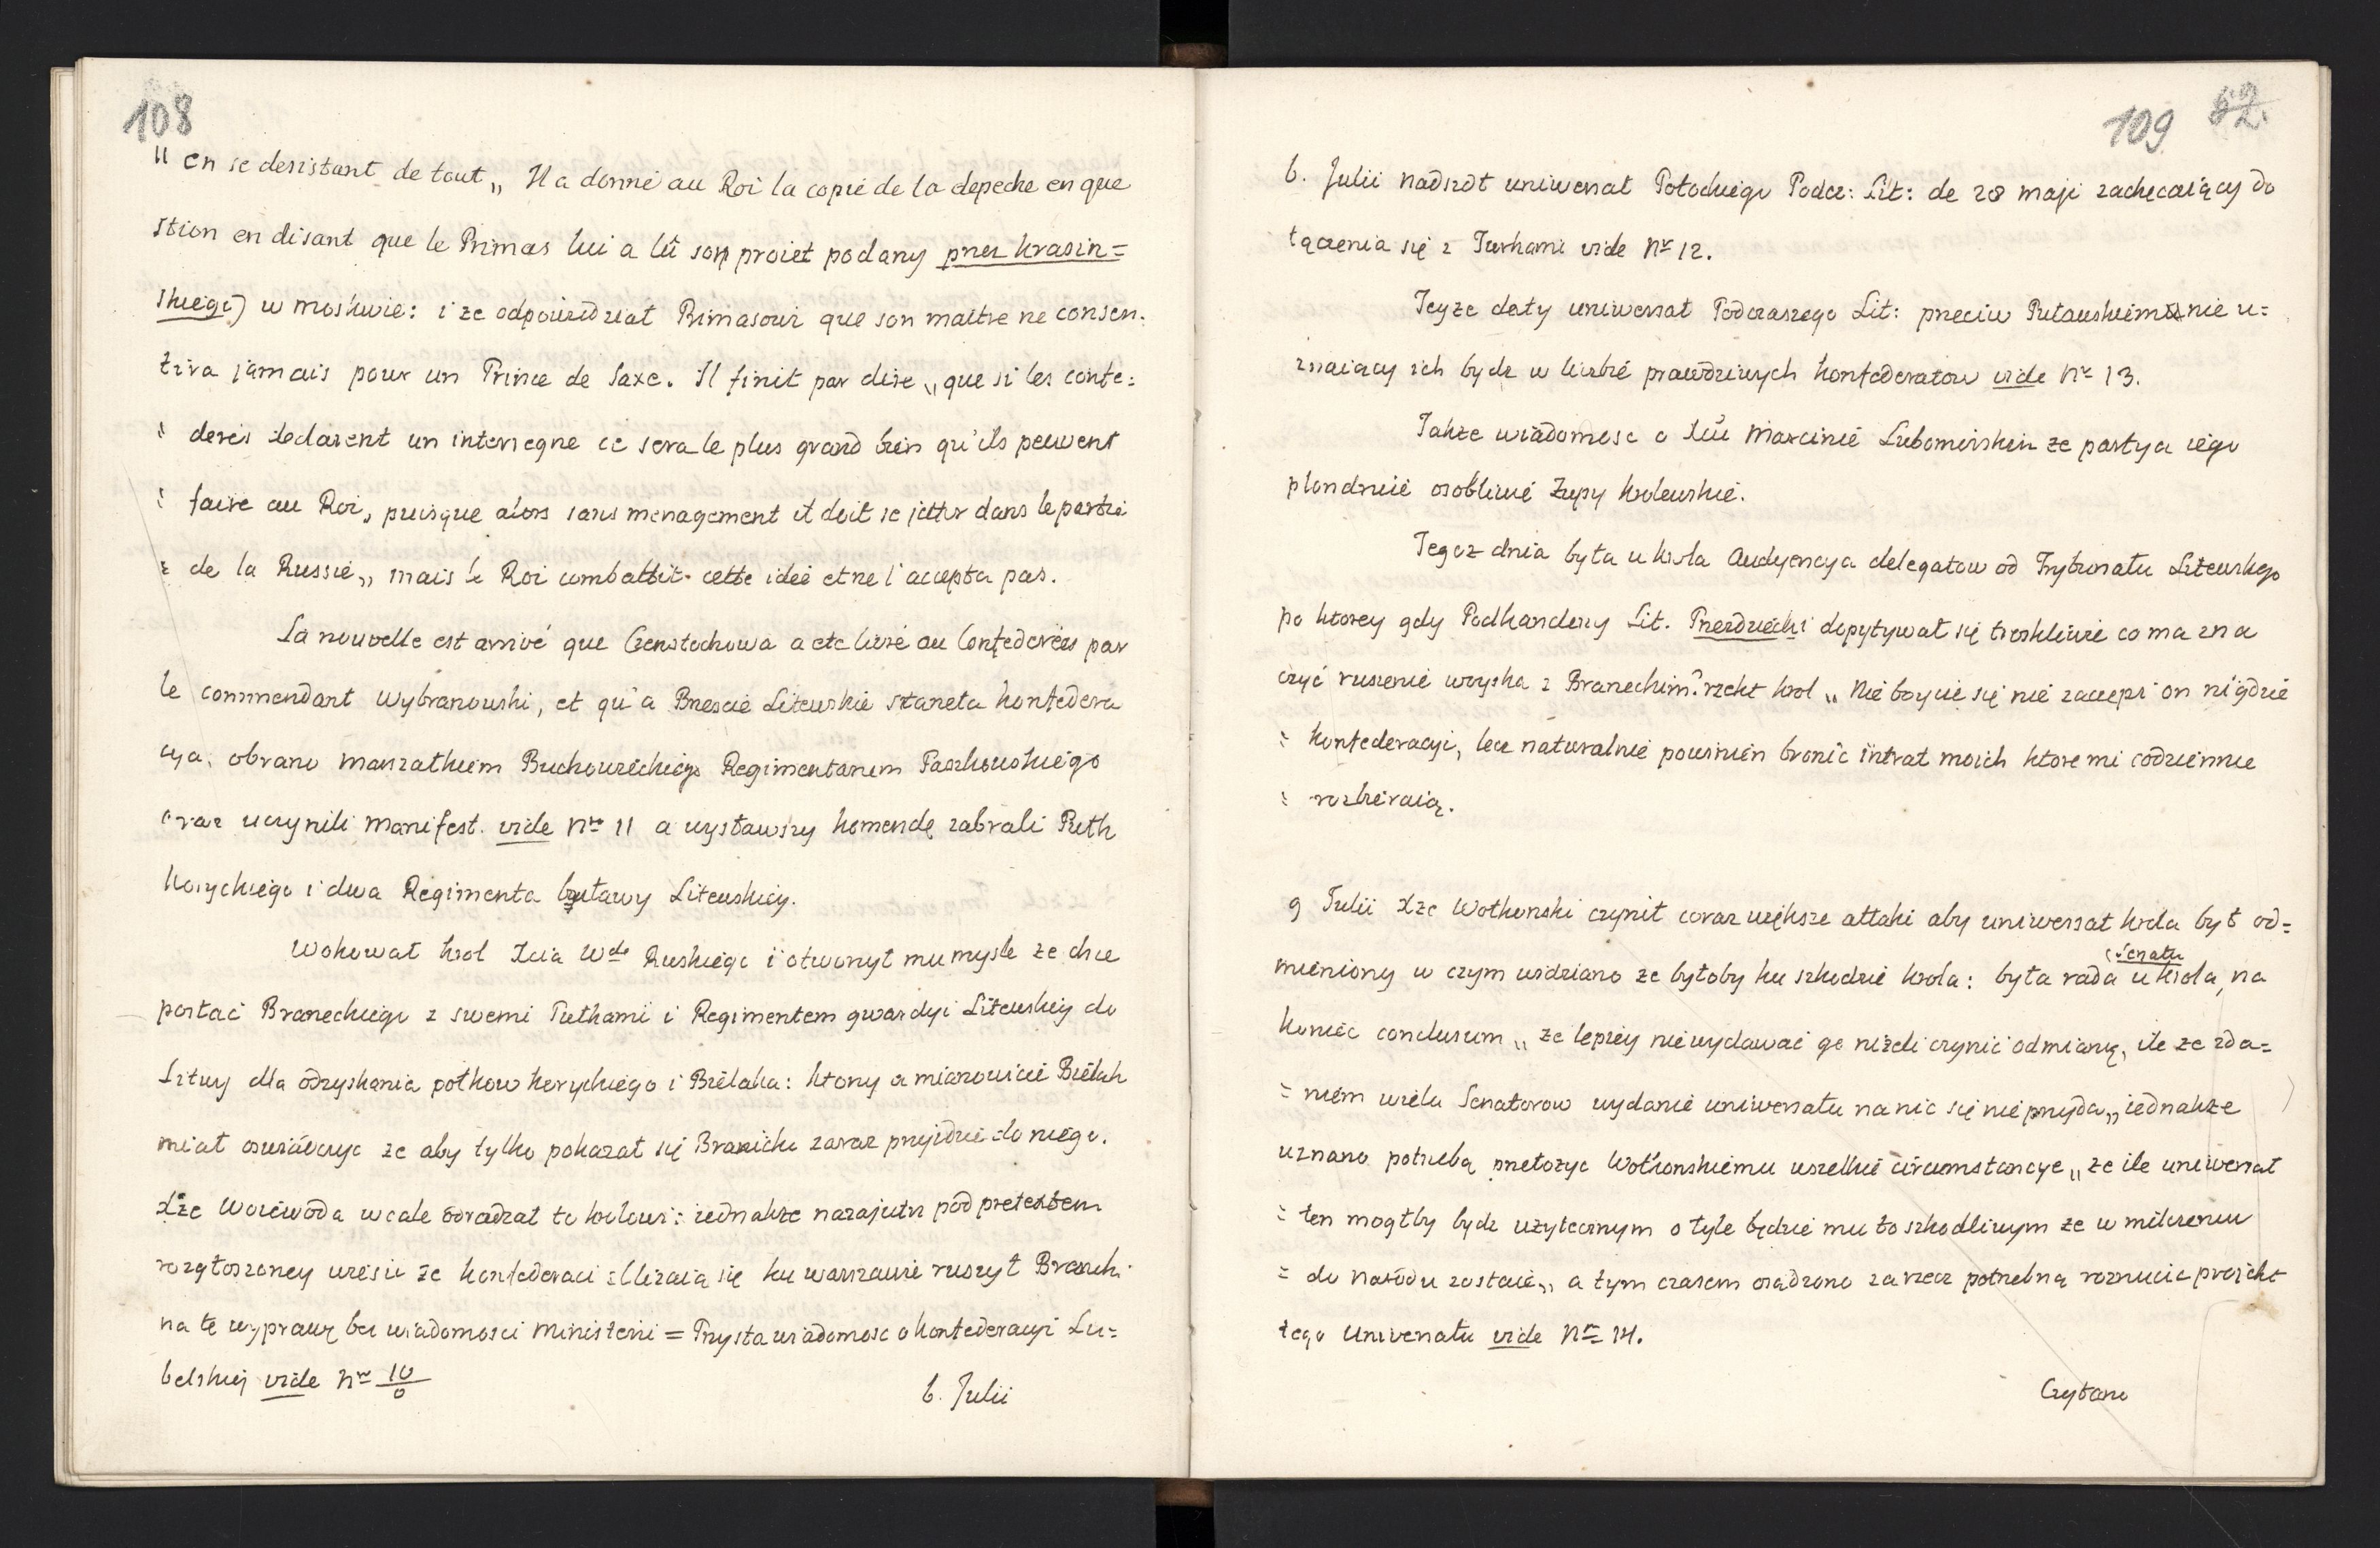 108
" en se desistant de tout „ Il a donné au Roi la copie de la depeche en que
stion en disant que le Primas lui a lû son proiet podany przez Krasin=
skiego) w Moskwie: i ze odpowiedział Primasowi que son maitre ne consen:
tira jamais pour un Prince de Saxe. Il finit par dire „ que si les confe:
: derés declarent un interregne ce sera le plus grand bien qu'ils peuvent
: faire au Roi, puisque alors sans menagement il doit se jetter dans le partie
: de la Russie „ mais le Roi combattit cette idée et ne l'accepta pas.
La nouvelle est arrivé que Czenstochowa a ete livré au Confederées par
le commendant Wybranowski, et qu'a Brescie Litewskie staneła konfedera
cya, obrano marszałkiem Buchowieckiego Regimentarzem Paszkowskiego
oraz uczynili manifest. vide Nro 11 a wysławszy komendę zabrali Pułk
Koryckiego i dwa Regimenta buławy Litewskiey.
Wokował krol Xcia Wde Ruskiego i otworzył mu mysle ze chce
posłać Braneckiego z swemi Pułkami i Regimentem gwardyi Litewskiey do
Litwy dla odzyskania połkow Koryckiego i Bielaka: ktorzy a mianowicie Bielak
miał oswiadczyc ze aby tylko pokazał się Branicki zaraz przejdzie do niego.
Xże Woiewoda wcale odradzał to krolowi: iednakze nazajutrz pod pretextem
rozgłoszoney wiesci ze konfederaci zblizaią się ku Warszawie ruszył Branicki
na tę wyprawę bez wiadomosci Ministerii = Przyszła wiadomosc o konfederacyi Lu=
belskiej vide Nro 10/0
6. Julii
109 52.
6. Julii nadszdł uniwersał Potockiego Podcz: Lit: de 28 maji zachęcaiący do
łączenia się z Turkami vide Nro 12.
Teyze daty uniwersał Podczaszego Lit: przeciw Pułauskim nie u=
znaiący ich bydz w liczbie prawdziwych konfederatow vide Nro 13.
Takze wiadomosc o Xciu Marcinie Lubomirskim ze partya iego
plondruie osobliwie Zupy krolewskie.
Tegoz dnia była u krola Audyencya delegatow od Trybunału Litewskego
po ktorey gdy Podkanclerzy Lit. Przezdziecki dopytywał się troskliwie co ma zna
czyć ruszenie woyska z Braneckim? rzekł krol „ Nie boycie się nie zaczepi on nigdzie
: konfederacyi, lecz naturalnie powinien bronić intrat moich ktore mi codziennie
: rozbieraią.
9 Julii Xze Wołkonski czynił coraz większe attaki aby uniwersał krola był od=
mieniony w czym widziano ze byłoby ku szkodzie krola: była rada senatu u krola, na
koniec conclusum „ ze lepiey nie wydawać go nizeli czynić odmianę, ile ze zda=
= niem wielu Senatorow wydanie uniwersału na nic się nie przyda „ iednakze
uznano potrzebą przełożyc Wołkonskiemu wszelkie circumstancye „ ze ile uniwersał
: ten mogłby bydz uzytecznym o tyle będzie mu to szkodliwym ze w milczeniu
= do narodu zostaie „ a tym czasem osądzono za rzecz potrzebną rozrzucic projekt
tego Uniwersału vide Nro 14.
Czytano